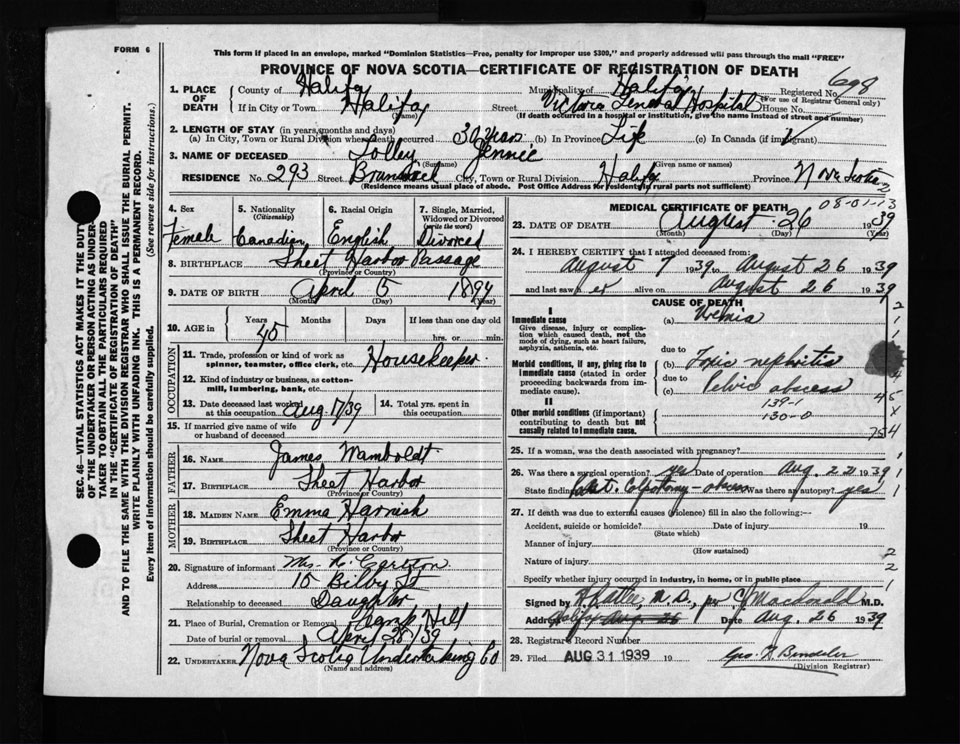 FORM 6
This form if placed in an envelope, marked "Dominion Statistics—Free, penalty for improper use $300," and properly addressed will pass through the mail "FREE"
PROVINCE OF NOVA SCOTIA—CERTIFICATE OF REGISTRATION OF DEATH
698
1. PLACE OF DEATH
County of Halifax Municipality of Halifax Registered No.
(For use of Registrar General only)
If in City or Town Halifax Street Victoria General Hospital House No.
(Name) (If death occurred in a hospital or institution, give the name instead of street and number)
2. LENGTH OF STAY (in years, months and days)
(a) In City, Town or Rural Division where death occurred 30 years (b) In Province Life (c) In Canada (if immigrant)
3. NAME OF DECEASED Lolley Jennie
(Surname) (Given name or names)
RESIDENCE No. 293 Street Brunswick City, Town or Rural Division Halifax Province Nova Scotia
(Residence means usual place of abode. Post Office Address for residents in rural parts not sufficient)
08-01-13
4. Sex Female
5. Nationality (Citizenship) Canadian
6. Racial Origin English
7. Single, Married, Widowed or Divorced (write the word) Divorced
8. BIRTHPLACE Sheet Harbor Passage
(Province or Country)
9. DATE OF BIRTH April 5 1894
(Month) (Day) (Year)
10. AGE in Years Months Days If less than one day old
45 hrs. or min.
OCCUPATION
11. Trade, profession or kind of work as spinner, teamster, office clerk, etc. Housekeeper
12. Kind of industry or business, as cotton-mill, lumbering, bank, etc.
13. Date deceased last worked at this occupation Aug 17/39
14. Total yrs. spent in this occupation
15. If married give name of wife or husband of deceased
FATHER
16. Name James Wamboldt
17. Birthplace Sheet Harbor
(Province or Country)
MOTHER
18. Maiden Name Emma Harnish
19. Birthplace Sheet Harbor
(Province or Country)
20. Signature of informant Mrs.
Address 10 Bilby St
Relationship to deceased Daughter
21. Place of Burial, Cremation or Removal Camp Hill
Date of burial or removal April 28/39
22. UNDERTAKER Nova Scotia Undertaking Co
(Name and address)
MEDICAL CERTIFICATE OF DEATH
23. DATE OF DEATH August 26 1939
(Month) (Day) (Year)
24. I HEREBY CERTIFY that I attended deceased from
August 7 1939 to August 26 1939
and last saw er alive on August 26 1939
CAUSE OF DEATH
I
Immediate cause (a) Uremia
Give disease, injury or complication which caused death, not the mode of dying, such as heart failure, asphyxia, asthenia, etc.
due to
Morbid conditions, if any, giving rise to Immediate cause (stated in order proceeding backwards from immediate cause). (b) Toxic nephritis
due to
(c) Pelvic abscess
139-1
130-0
II
Other morbid conditions (if important) contributing to death but not causally related to Immediate cause.
25. If a woman, was the death associated with pregnancy?
26. Was there a surgical operation? yes Date of operation Aug. 22 1939
State findings Colpotomy - abscess Was there an autopsy? yes
27. If death was due to external causes (violence) fill in also the following:—
Accident, suicide or homicide? Date of injury 19
(State which)
Manner of injury
(How sustained)
Nature of injury
Specify whether injury occurred in industry, in home, or in public place
Signed by M.D.
Address Halifax Aug 26 Date Aug. 26 1939
28. Registrar Record Number
29. Filed AUG 31 1939 19
(Division Registrar)
SEC. 46—VITAL STATISTICS ACT MAKES IT THE DUTY
OF THE UNDERTAKER OR PERSON ACTING AS UNDER-
TAKER TO OBTAIN ALL THE PARTICULARS REQUIRED
IN THE "CERTIFICATE OF REGISTRATION OF DEATH"
AND TO FILE THE SAME WITH THE DIVISION REGISTRAR WHO SHALL ISSUE THE BURIAL PERMIT.
WRITE PLAINLY WITH UNFADING INK. THIS IS A PERMANENT RECORD.
Every item of information should be carefully supplied. (See reverse side for instructions.)